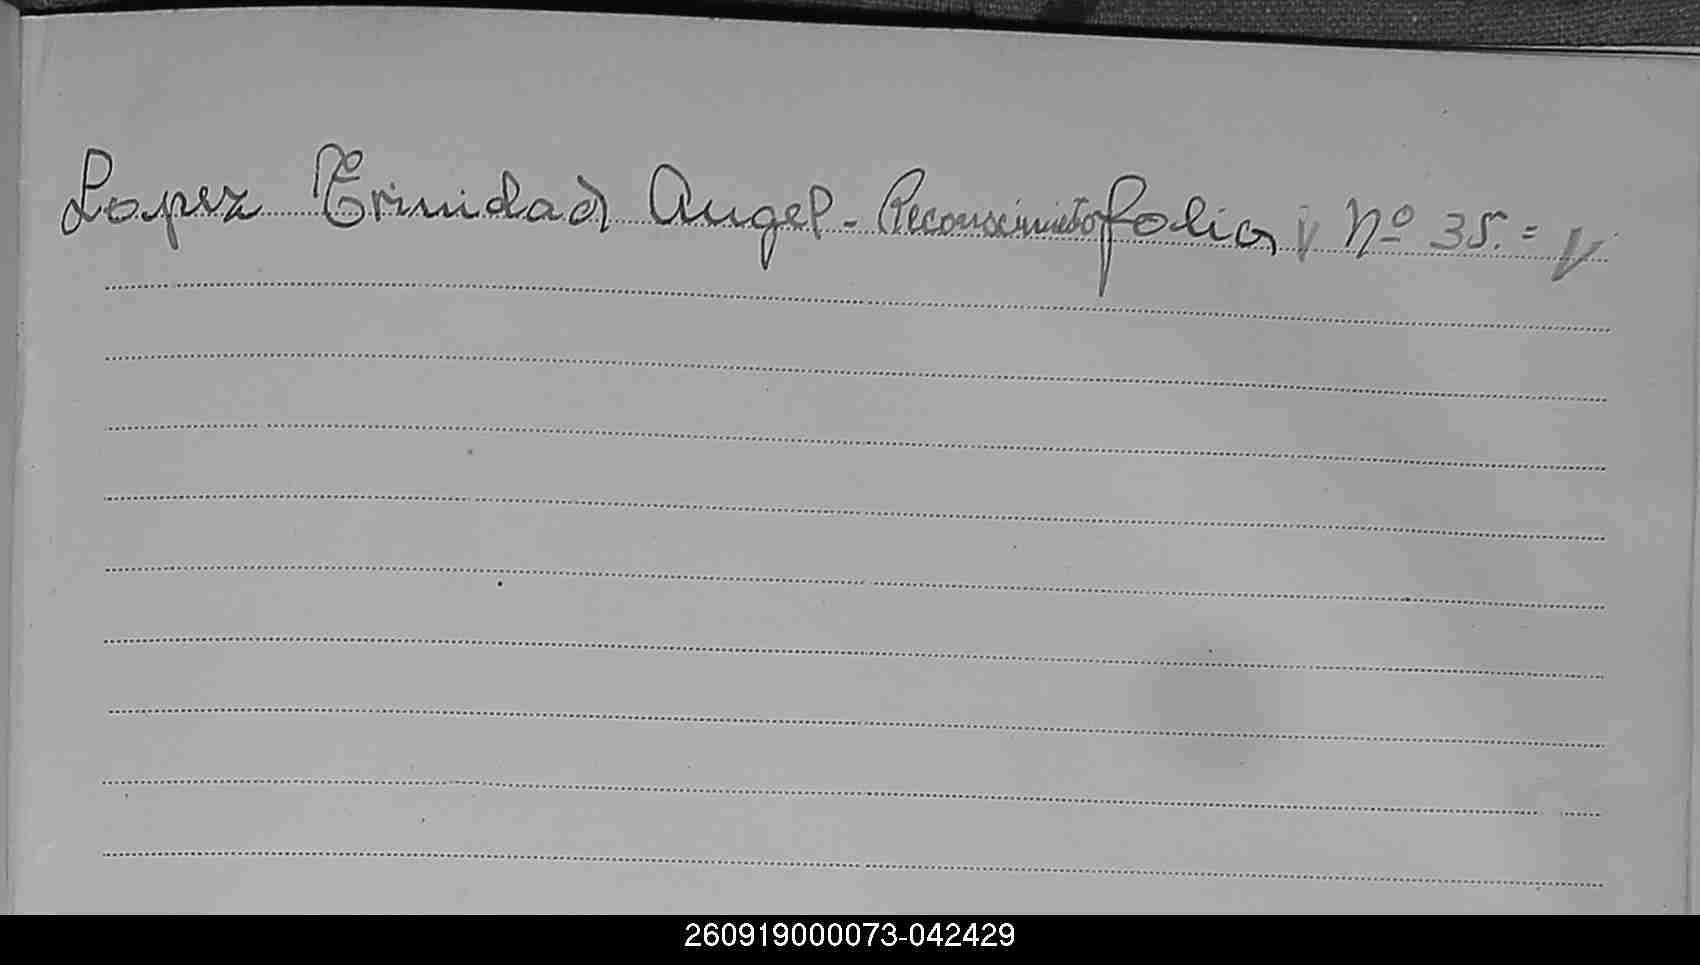 Lopez Trinidad Angel - Reconocimieto folio V Nº 35. = V
260919000073-042429